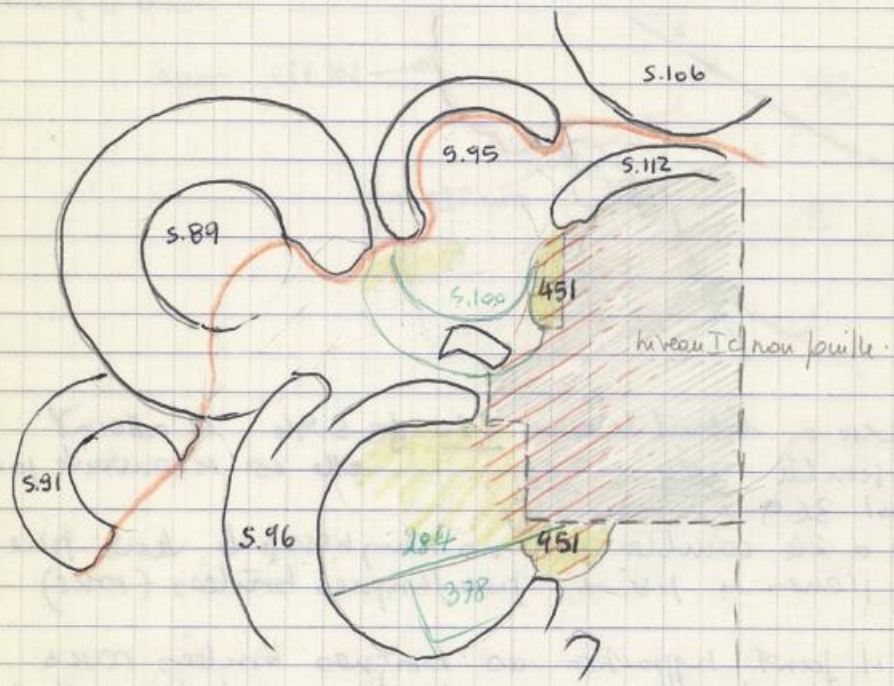 S.106
S.95
S.112
S.89
S.100
451
niveau Ic non fouillé.
S.91
S.96
284
451
378